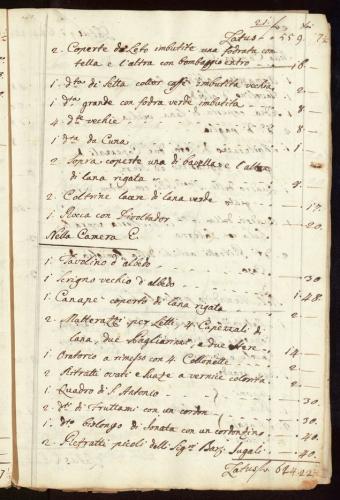 Latus 559
2. Coperte da Leto imbutite una fodrata con
tella e l'altra con bombaggio entro 18
1. dta di Setta color imbutita vechia 2
1. dta grande con fodra verde imbutita 8
4. dte vechie 8
1. dta da Cuna 1
2. Sopra coperte una di bavella e l'altra
di lana rigata
2. Coltrine lacere di lana verde 17
1. Rocca con 20
Nella Camera E.
1. Tavolino d'albedo
1. Scrigno vechio d'albedo 30
1. Canapè coperto di lana rigata 48
2. Matterazzi per Letti, 4 Capezzali di
lana, due Pagliarizzi, e due
1. Oratorio a rimesso con 4 Collonette 14
2. Ritratti ovati e a vernice colorita 2
1. Quadro di S. Antonio 30
2. dti di Fruttami con un cordon
1. dto bislongo di Sonata con un cordongino 30
2. Pietratti picoli delli Sigri Jugali 40
Latus 624